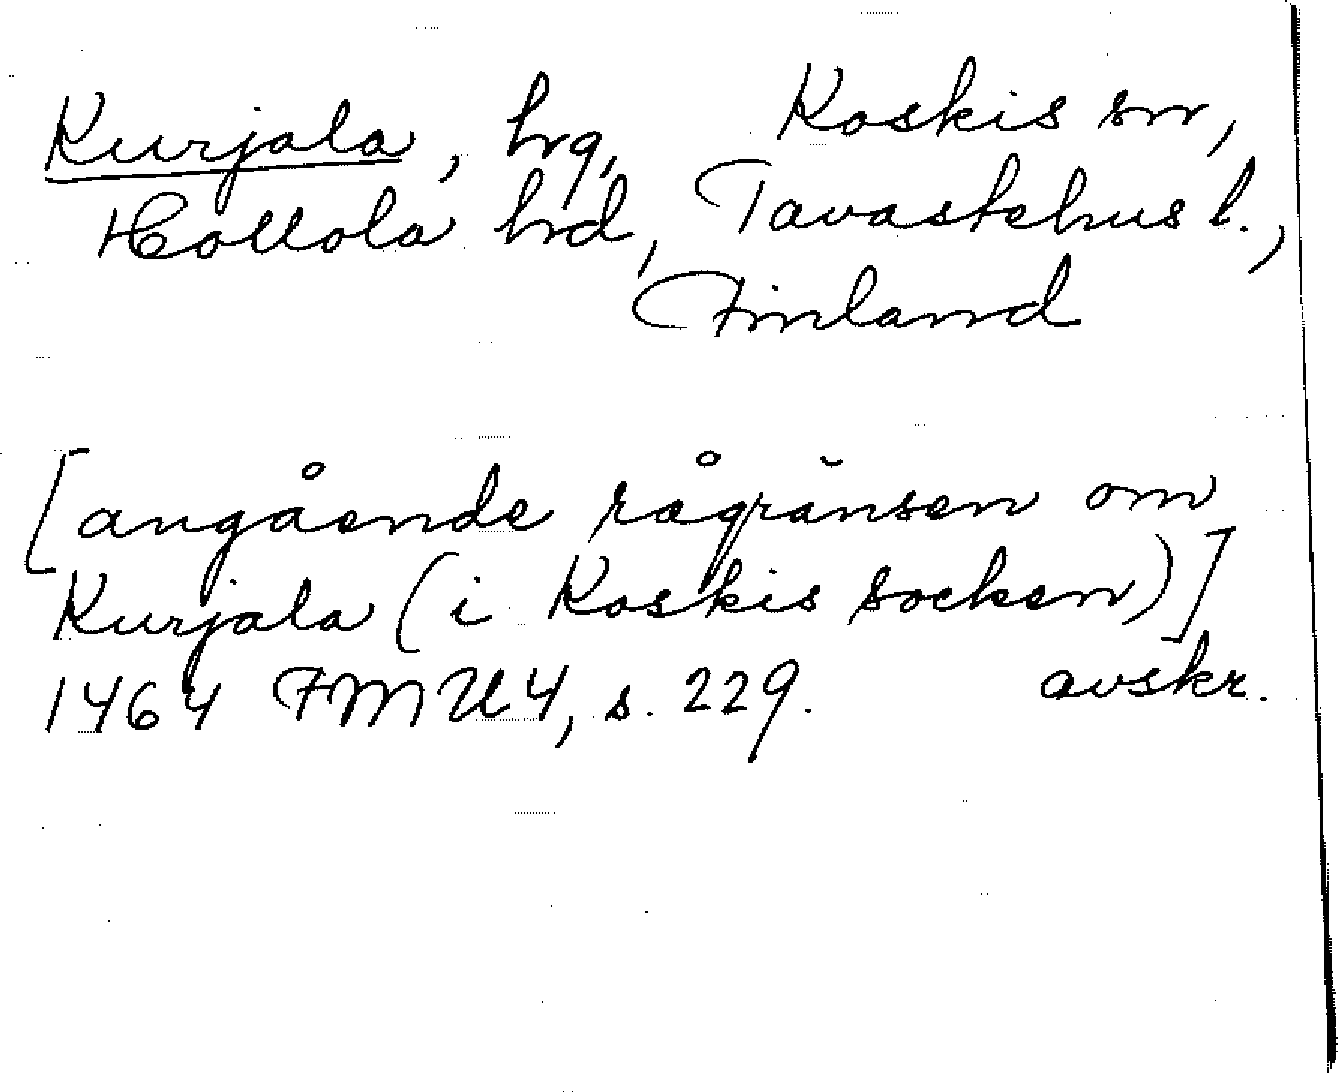 Kurjala, hrg, Koskis sn,
Hollola hrd, Tavastehus l.,
Finland
[angående rågränsen om
Kurjala (i Koskis socken)]
1464 FMU 4, s. 229. avskr.